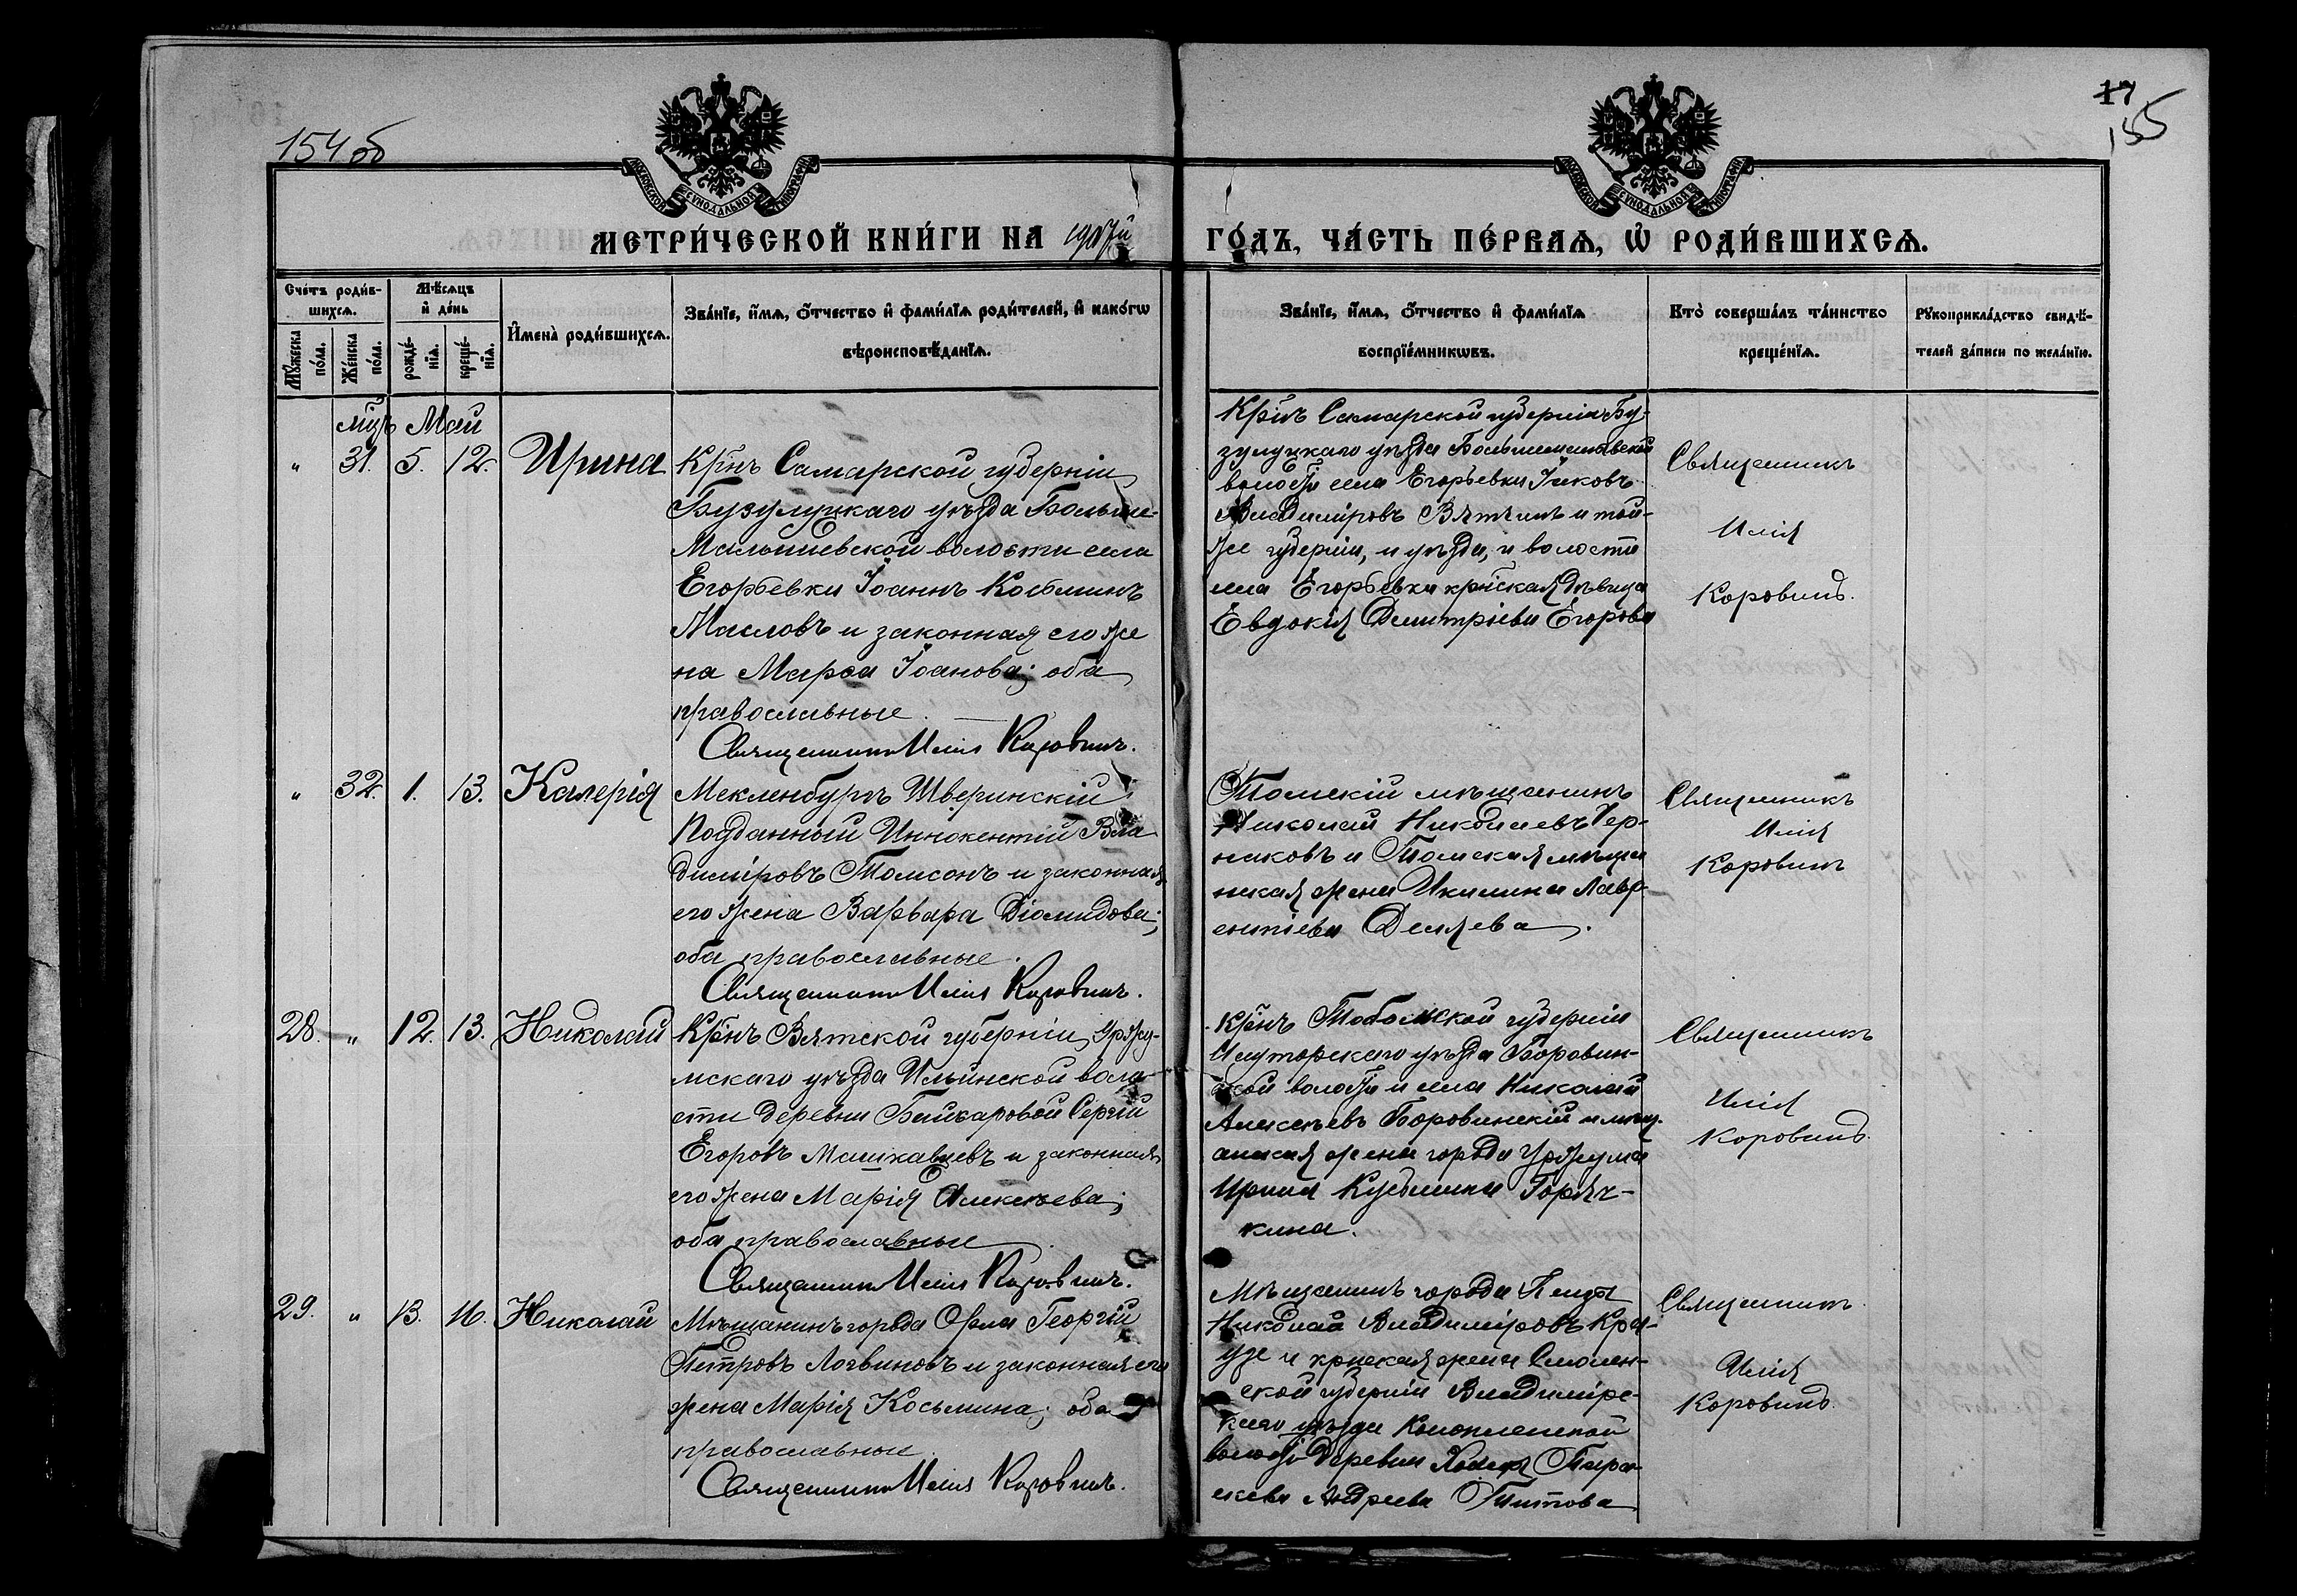 154 об
155
МОСКОВСКОЙ СѴНОДАЛЬНОЙ ТИПОГРАФІИ
МОСКОВСКОЙ СѴНОДАЛЬНОЙ ТИПОГРАФІИ
МЕТРИ́ЧЕСКОЙ КНИ́ГИ НА 1907й ГО́ДЪ, ЧА́СТЬ ПЕ́РВАѦ, Ѽ РОДИ́ВШИХСѦ.
Сче́тъ роди́в-
шихсѧ.
Мꙋ́жеска по́ла.
Же́нска по́ла.
Мѣ́сѧцъ
и҆ де́нь
рожде́-
нїѧ.
креще́-
нїѧ.
И҆мена̀ роди́вшихсѧ.
Зва́нїе, и҆́мѧ, ѻ҆́тчество и҆ фами́лїѧ роди́телей, и҆ како́гѡ
вѣроисповѣ́данїѧ.
Зва́нїе, и҆́мѧ, ѻ҆́тчество и҆ фами́лїѧ
воспрїе́мникѡвъ.
Кто̀ соверша́лъ та́инство
креще́нїѧ.
Рꙋкоприкла́дство свидѣ́-
телей за́писи по жела́нїю.
мцъ Май
" 31. 5. 12. Ирина
Кр̃нъ Самарской губерніи
Бузулуцкаго уѣзда Больше-
Малышевской волости села
Егорьевки Іоаннъ Косминъ
Масловъ и законная его же
на Марѳа Іоанова; оба
православные.
Священникъ Илія Коровинъ.
Кр̃нъ Самарской губерніи Бу-
зулуцкаго уѣзда Большемалышевской
волости села Егорьевки Іаковъ
Владиміровъ и той-
же губерніи, и уѣзда, и волости
села Егорьевки кр̃нская дѣвица
Евдокія Димитріева Егорова
Священникъ
Илія
Коровинъ.
" 32. 1. 13. Калерія
Мекленбургъ Шверинскій
Подданный Иннокентій Вла
диміровъ Томсонъ и законная
его жена Варвара Діомидова;
оба православные.
Священникъ Илія Коровинъ.
Томскій мѣщанинъ
Николай Николаевъ Чер-
наковъ и Томская мѣща
нская жена Акилина Лавр-
ентіева
Священникъ
Илія
Коровинъ
28. " 12. 13. Николай
Кр̃нъ Вятской губерніи, Уржу-
мскаго уѣзда Ильинской воло
сти деревни Байкаровой Сергій
Егоровъ и законная
его жена Марія Алексѣева;
оба православные
Священникъ Илія Коровинъ.
Кр̃нъ Тобольской губерніи
Ялуторскаго уѣзда Боровин-
ской волости и села Николай
Алексѣевъ Боровинскій и мѣщ-
анская жена города Уржума
Ирина Кузьмина Горяч-
кина.
Священникъ
Илія
Коровинъ.
29. " 13. 16. Николай
Мѣщанинъ города Орла Георгій
Петровъ Логвиновъ и законная его
жена Марія Косьмина; оба
православные.
Священникъ Илія Коровинъ.
Мѣщанинъ города
Николай Владиміровъ Кра-
узе и кр̃нская жена Смолен-
ской губерніи Владимірс-
каго уѣзда
волости деревни Пара-
скева Андреева Титова
Священникъ
Илія
Коровинъ.